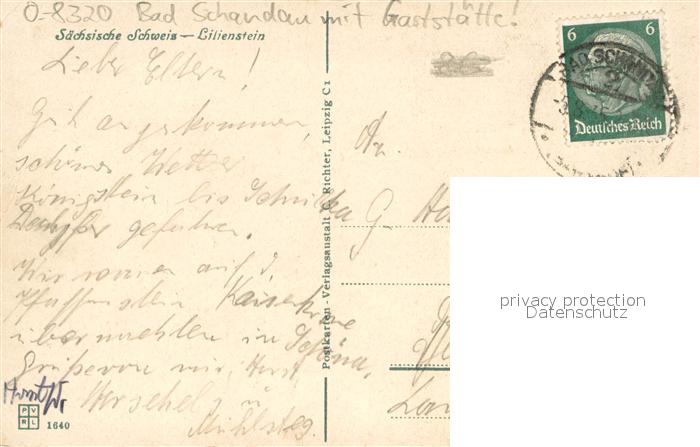 O-8320 Bad Schandau mit Gaststätte!
Sächsische Schweiz — Lilienstein
6 6
Deutsches Reich
BAD SCHAND
Lieber Eltern!
Gut angekommen,
schönes Wetter
Königstein bis Schmilka
Dampfer gefahren.
Wir waren auf d.
Pfaffenstein Kaiserkrone
übernachten in Schöna,
Grüße von mir, Horst,
Herschel u
Mühlsteg.
Postkarten-Verlagsanstalt C. Richter, Leipzig C1
An
G
PVRL 1640
privacy protection
Datenschutz